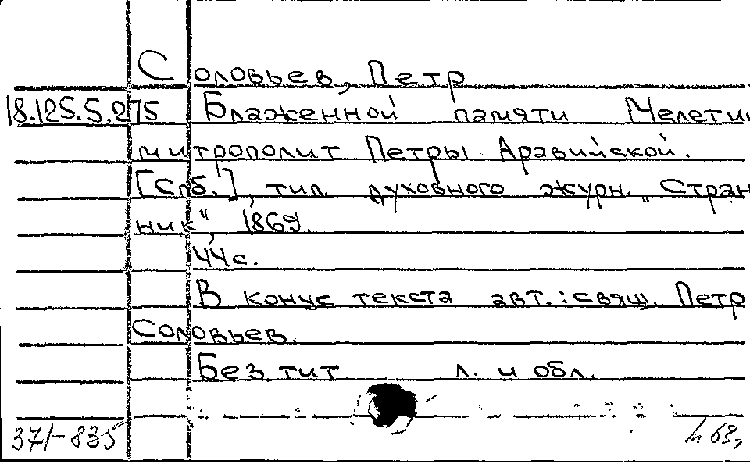 Соловьев, Петр
18.125.5.275 Блаженной памяти Мелетий
митрополит Петры Аравийской.
[Спб.], тип. духовного журн. „Стран
ник“, 1869.
44 с.
В конце текста авт.: свящ. Петр
Соловьев.
Без тит л. и обл.
371-835